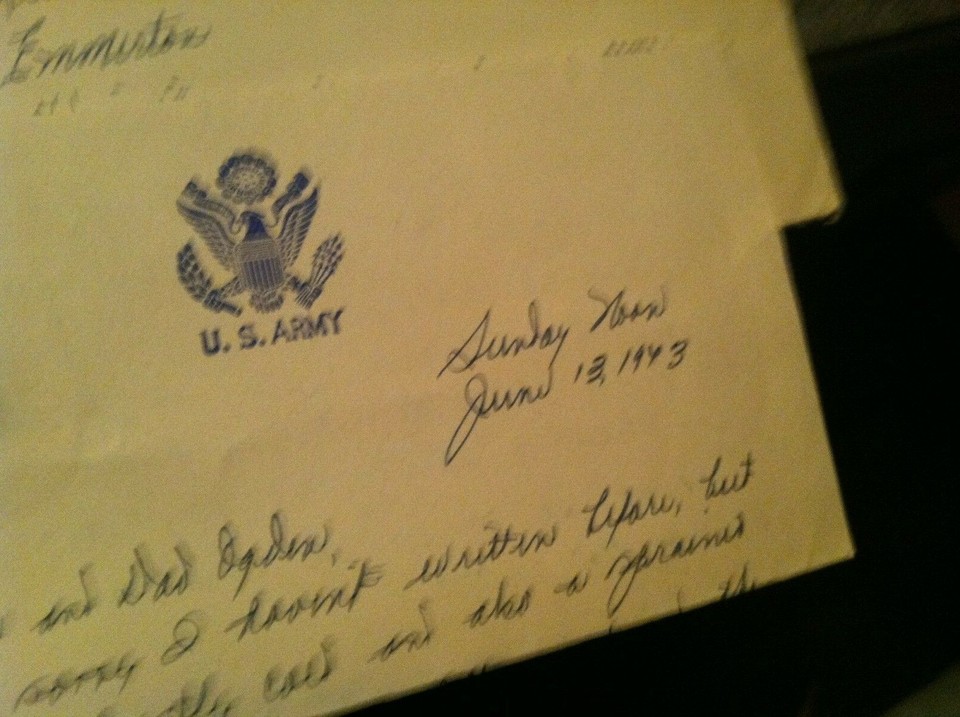 Emmerton
U. S. ARMY
Sunday Noon
June 13, 1943
and Dad Ogden,
sorry I havent written before, but
cold and also a sprained
the